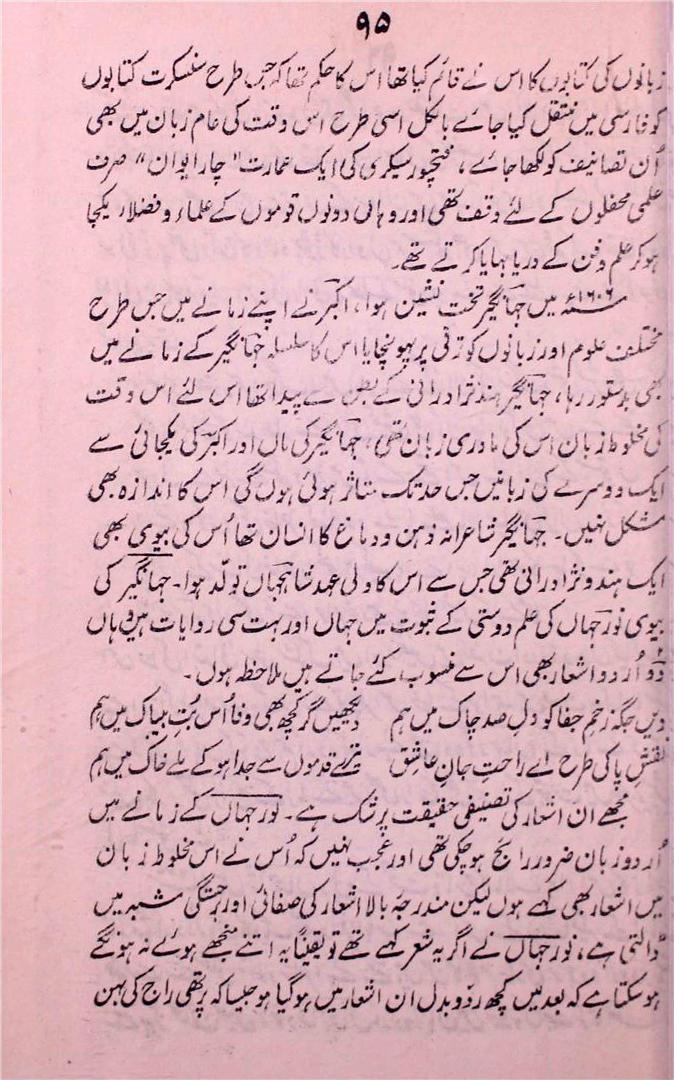 ۹۵
زبانوں کی کتابوں کا اس نے قائم کیا تھا اس کا حکم تھا کہ جس طرح سنسکرت کتابوں
کو فارسی میں منتقل کیا جائے بالکل اسی طرح اس وقت کی عام زبان میں بھی
اُن تصانیف کو لکھا جائے ، فتحپور سیکری کی ایک عمارت "چار ایوان" صرف
علمی محفلوں کے لئے وقف تھی اور وہاں دونوں قوموں کے علماء و فضلاء یکجا
ہو کر علم و فن کے دریا بہایا کرتے تھے۔
۱۶۰۶ء میں جہانگیر تخت نشین ہوا، اکبر نے اپنے زمانے میں جس طرح
مختلف علوم اور زبانوں کو ترقی پر پہونچایا اس کا سلسلہ جہانگیر کے زمانے میں
بھی بدستور رہا، جہانگیر ہند نژاد رانی کے بطن سے پیدا تھا اس لئے اس وقت
کی مخلوط زبان اس کی مادری زبان تھی، جہانگیر کی ماں اور اکبر کی یکجائی سے
ایک دوسرے کی زبانیں جس حد تک متاثر ہوئی ہوں گی اس کا اندازہ بھی
مشکل نہیں۔ جہانگیر شاعرانہ ذہن و دماغ کا انسان تھا اُس کی بیوی بھی
ایک ہندو نژاد رانی تھی جس سے اس کا ولی عہد شاہجہاں تولّد ہوا۔ جہانگیر کی
بیوی نور جہاں کی علم دوستی کے ثبوت میں جہاں اور بہت سی روایات ہیں وہاں
دو اُردو اشعار بھی اس سے منسوب کئے جاتے ہیں ملاحظہ ہوں۔
دیں جگہ زخمِ جفا کو دلِ صد چاک میں ہم دیکھیں گر کچھ بھی وفا اُس بُتِ بیباک میں ہم
نقشِ پا کی طرح اے راحتِ جانِ عاشق تیرے قدموں سے جدا ہو کے ملے خاک میں ہم
مجھے ان اشعار کی تصنیفی حقیقت پر شک ہے۔ نور جہاں کے زمانے میں
اُردو زبان ضرور رائج ہو چکی تھی اور عجب نہیں کہ اُس نے اس مخلوط زبان
میں اشعار بھی کہے ہوں لیکن مندرجہ بالا اشعار کی صفائی اور برجستگی مشبہ میں
ڈالتی ہے، نور جہاں نے اگر یہ شعر کہے تھے تو یقیناً یہ اتنے منجھے ہوئے نہ ہونگے
ہو سکتا ہے کہ بعد میں کچھ ردّ و بدل ان اشعار میں ہو گیا ہو جیسا کہ پرتھی راج کی بہن